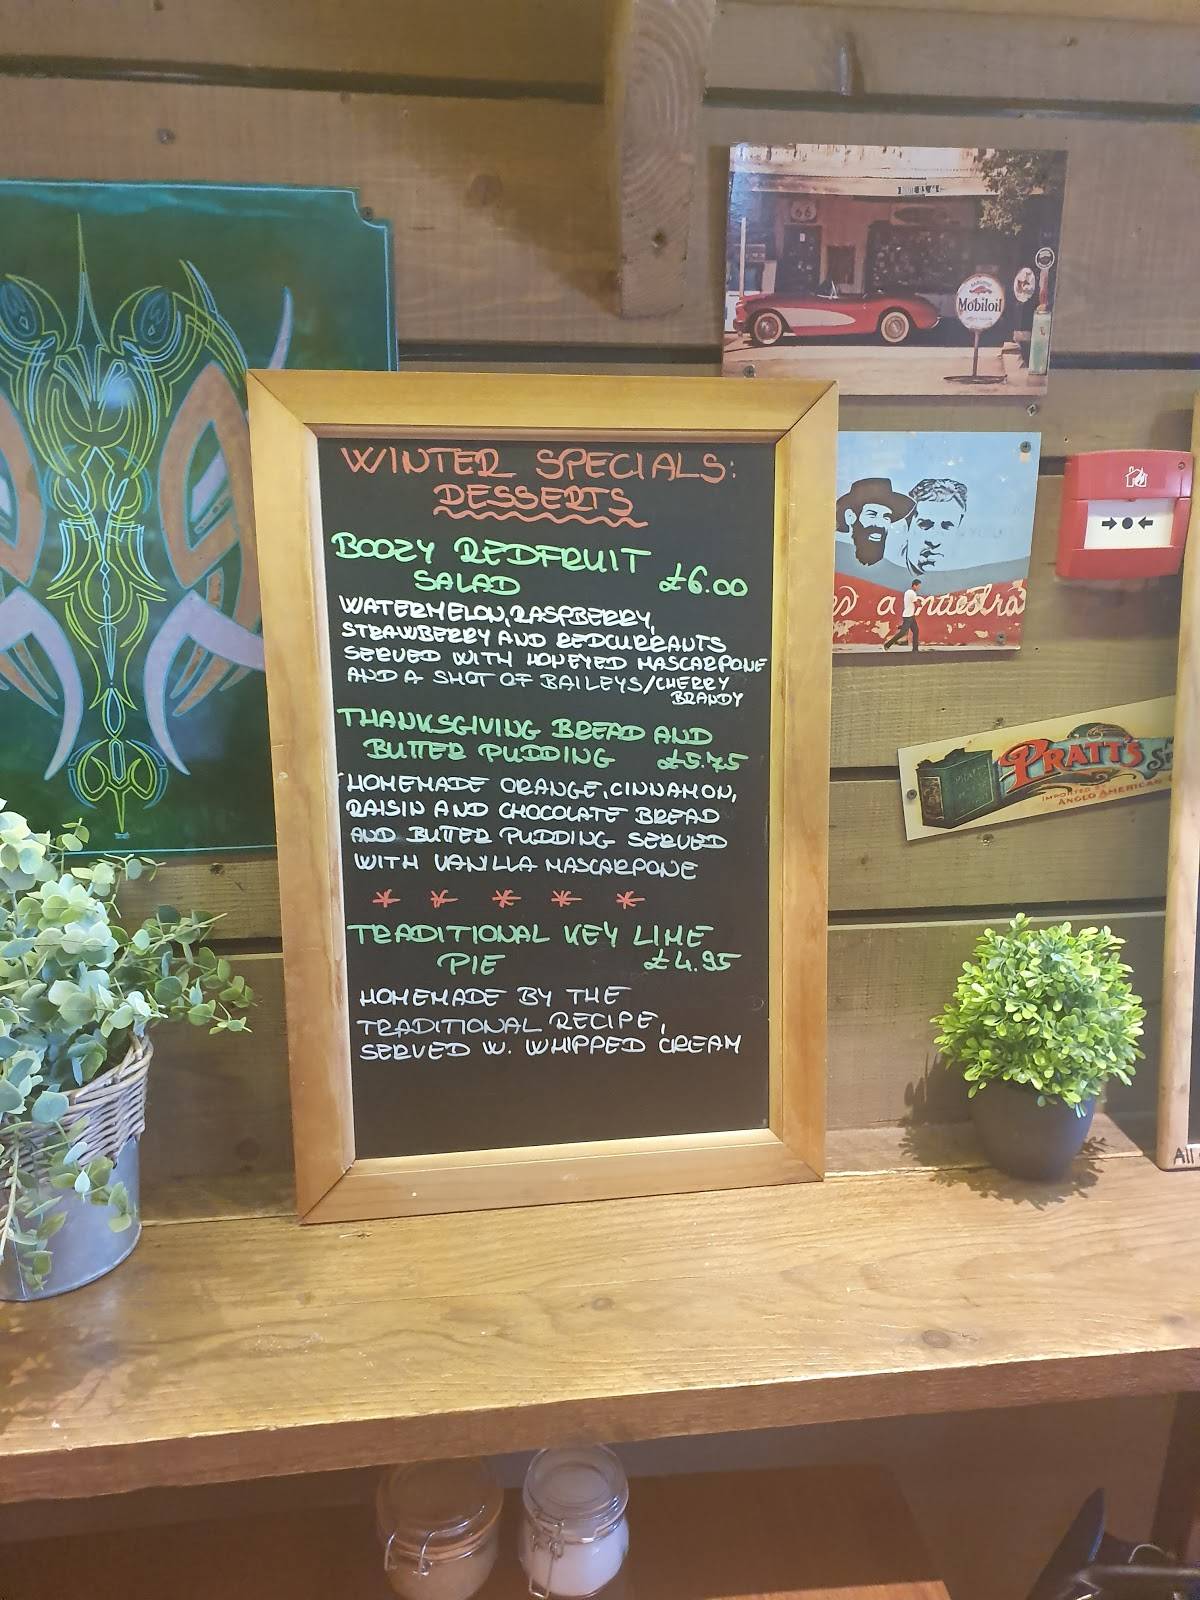 WINTER SPECIALS:
DESSERTS
BOOZY REDFRUIT
SALAD £6.00
WATERMELON, RASPBERRY,
STRAWBERRY AND REDCURRANTS
SERVED WITH HONEYED MASCARPONE
AND A SHOT OF BAILEYS/CHERRY
BRANDY
THANKSGIVING BREAD AND
BUTTER PUDDING £5.75
HOMEMADE ORANGE, CINNAMON,
RAISIN AND CHOCOLATE BREAD
AND BUTTER PUDDING SERVED
WITH VANILLA MASCARPONE
* * * * *
TRADITIONAL KEY LIME
PIE £4.95
HOMEMADE BY THE
TRADITIONAL RECIPE,
SERVED W. WHIPPED CREAM
66
Mobiloil
a nuestra
PRATT'S
IMPORTED BY
ANGLO AMERICAN
All